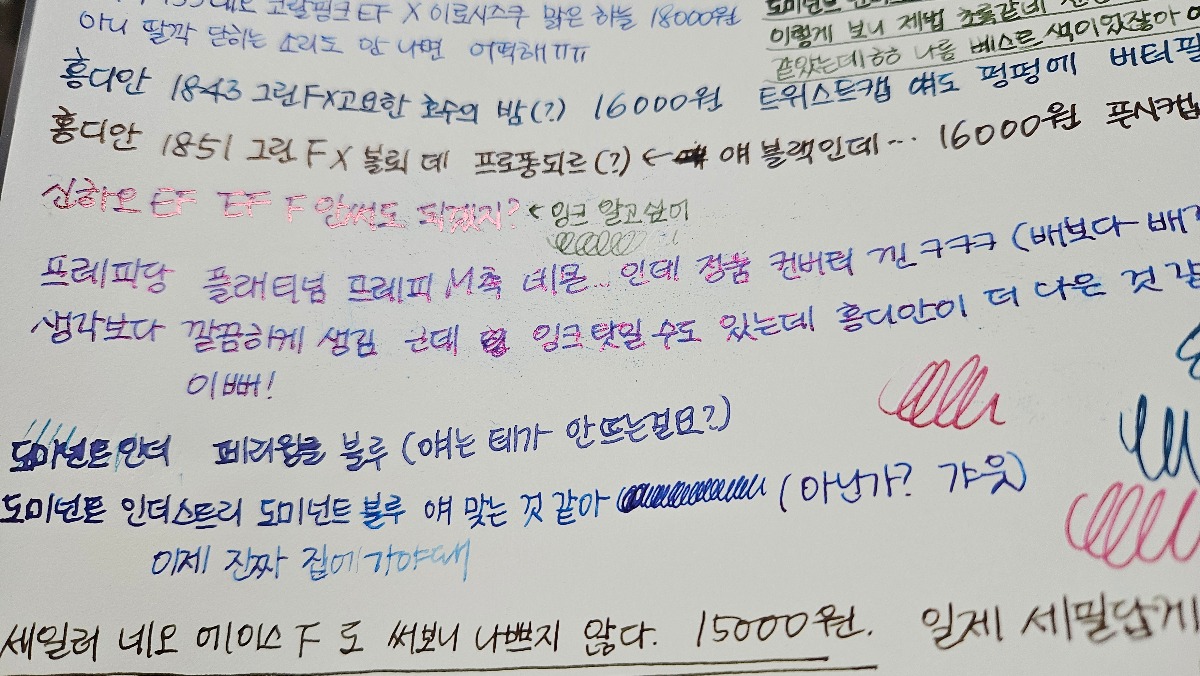 네오 코랄핑크 EF X 이로시즈쿠 맑은 하늘 18000원
아니 딸깍 닫히는 소리도 안 나면 어떡해 ㅠㅠ
이렇게 보니 제법 초록같네
같았는데ㅎㅎ 나름 베스트 색이있잖아
홍디안 1843 그린 F X 고요한 호수의 밤(?) 16000원 트위스트캡 얘도 펑펑에 버터필
홍디안 1851 그린 F X 블뢰 데 프로퐁되르(?) ← 얘 블랙인데… 16000원 푼시캡
신한오 EF EF F 안써도 되겠지? ← 잉크 알고싶어
프레피당 플래티넘 프레피 M촉 네몬.. 인데 정품 컨버터 낀 ㅋㅋㅋ (배보다 배
생각보다 깔끔하게 생김 근데 잉크탓일 수도 있는데 홍디안이 더 다은 것 같
이뻐!
도미넌트인더 페리윙클 블루 (얘는 테가 안 뜨는걸요?)
도미넌트 인더스트리 도미넌트 블루 얘 맞는 것 같아 (아닌가? 갸웃)
이제 진짜 집에 가야돼
세일러 네오 에이스 F 도 써보니 나쁘지 않다. 15000원. 일제 세필답게